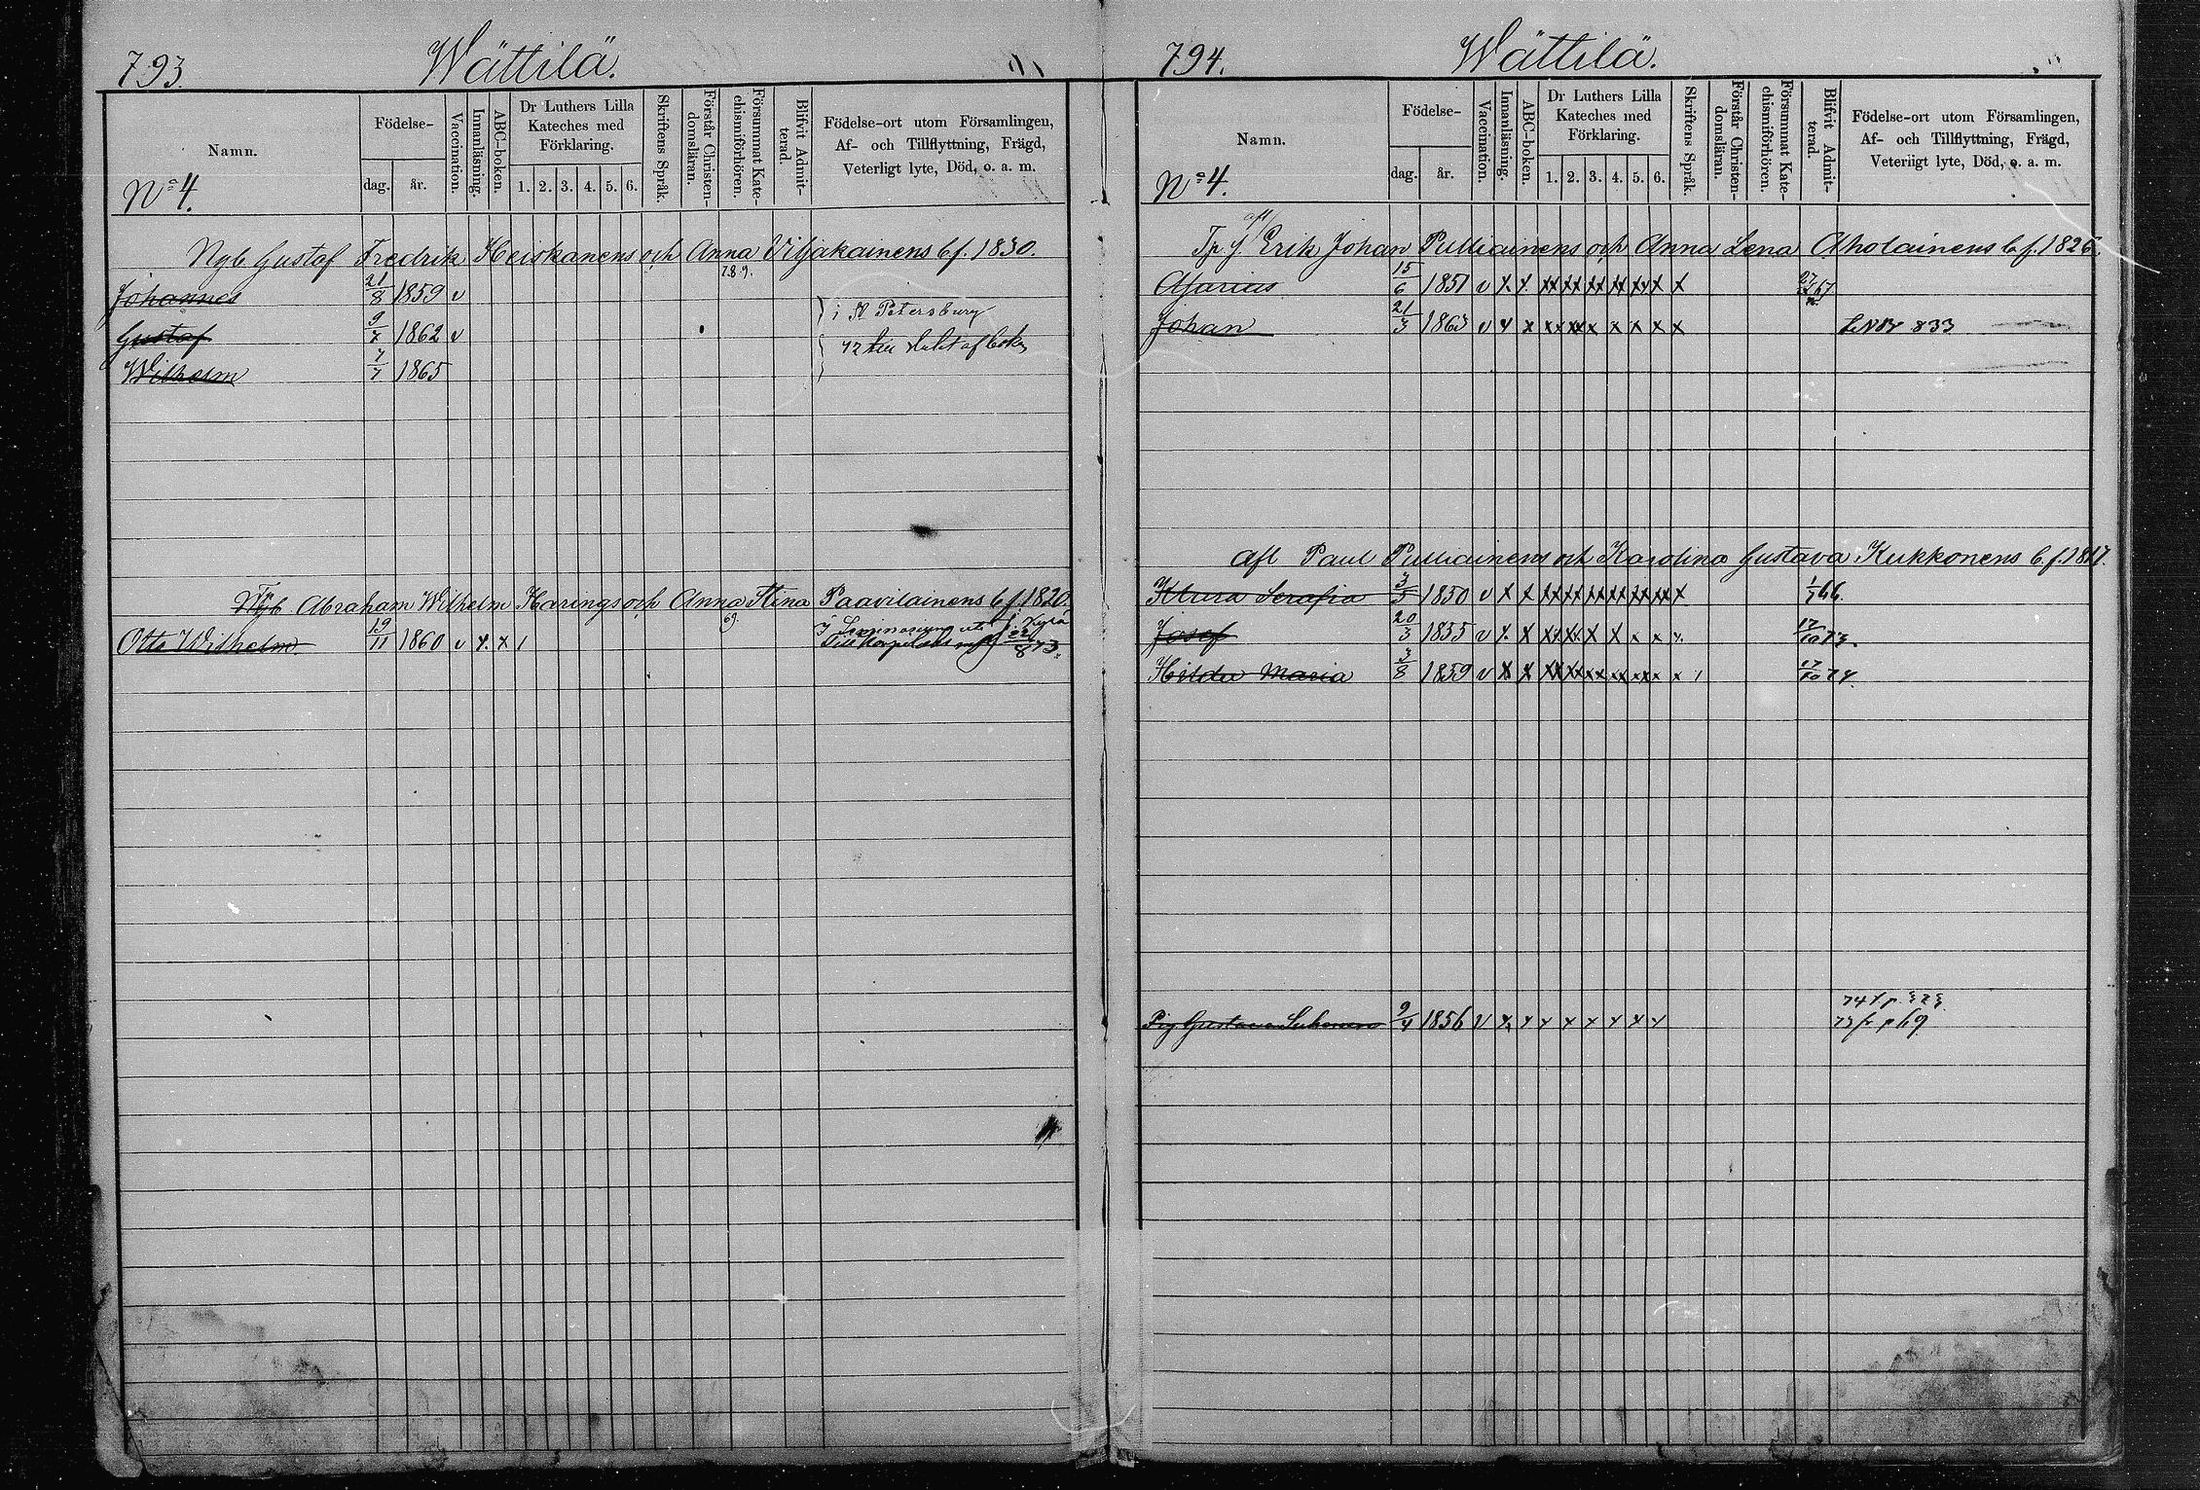 793. Wättilä.
Namn.
Födelse-
dag.
år.
Vaccination.
Innanläsning.
ABC-boken.
Dr Luthers Lilla
Kateches med
Förklaring.
1. 2. 3. 4. 5. 6.
Skriftens Språk.
Förstår Christen-
domsläran.
Försummat Kate-
chismiförhören.
Blifvit Admit-
terad.
Födelse-ort utom Församlingen,
Af- och Tillflyttning, Frägd,
Veterligt lyte, Död, o. a. m.
No 4.
Nyb Gustaf Fredrik Heiskanens och Anna Viljakainens b f. 1830.
7.8.9.
Johannes 21/8 1859 v
i St Petersburg
Gustaf 9/7 1862 v
72
Wilhelm 7/7 1865
Nyb Abraham Wilhelm Harings och Anna Stina Paavilainens b f. 1820.
69.
Otto Wilhelm 19/11 1860 v x. x 1
22/8 73.
794. Wättilä.
Namn.
Födelse-
dag.
år.
Vaccination.
Innanläsning.
ABC-boken.
Dr Luthers Lilla
Kateches med
Förklaring.
1. 2. 3. 4. 5. 6.
Skriftens Språk.
Förstår Christen-
domsläran.
Försummat Kate-
chismiförhören.
Blifvit Admit-
terad.
Födelse-ort utom Församlingen,
Af- och Tillflyttning, Frägd,
Veterligt lyte, Död, o. a. m.
No 4.
afl
Erik Johan Pulliainens och Anna Lena Aholainens b f. 1826.
Asarius 15/6 1851 v x. x. xx xx xx xx xx x x
Johan 21/3 1863 v x x xx xx x x x x x 833
Afl Paul Pulliainens och Karolina Gustava Kukkonens b f. 1817.
Klara Serafia 3/5 1850 v x x xx xx xx xx xx xx x 66.
Josef 20/3 1855 v x. x xx xx x x x x x 17/10 73.
Hilda Maria 3/8 1859 v x x xx xx xx xx xx x x 1 17/10 74.
Pig Gustava 9/4 1856 v x. x x x x x x x
73 fr p 69